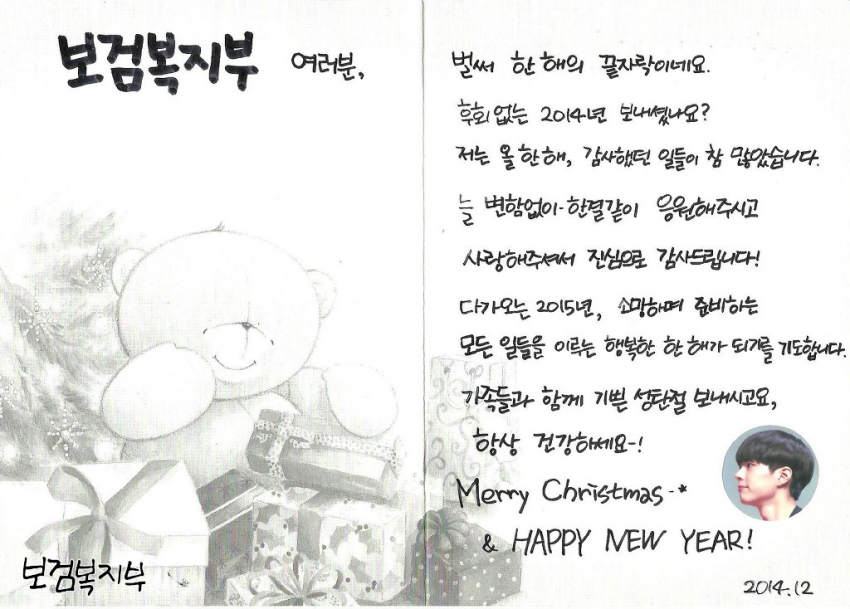 보검복지부 여러분,
벌써 한 해의 끝자락이네요.
후회 없는 2014년 보내셨나요?
저는 올 한 해, 감사했던 일들이 참 많았습니다.
늘 변함없이 한결같이 응원해주시고
사랑해주셔서 진심으로 감사드립니다!
다가오는 2015년, 소망하며 준비하는
모든 일들을 이루는 행복한 한 해가 되기를 기도합니다.
가족들과 함께 기쁜 성탄절 보내시고요,
항상 건강하세요-!
Merry Christmas-*
& HAPPY NEW YEAR!
보검복지부
2014.12